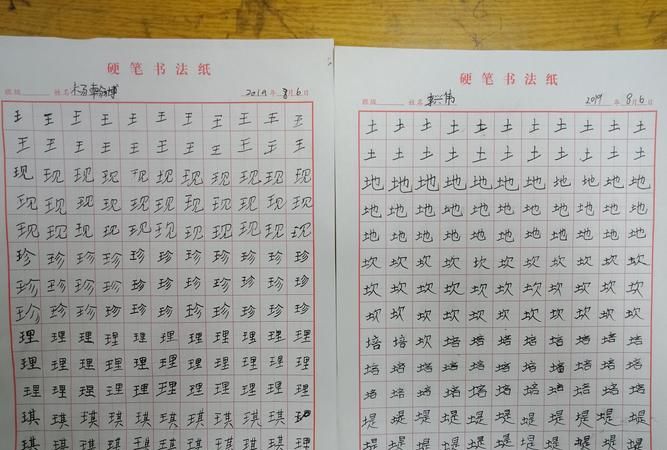 硬笔书法纸
班级 姓名 2019年 8月6日
王王王王王王王王王王王
王王王王王王王王王王王
现现现现现现现现现现现
现现现现现现现现现现现
现现现现现现现现现现现
珍珍珍珍珍珍珍珍珍珍珍
珍珍珍珍珍珍珍珍珍珍珍
珍珍珍珍珍珍珍珍珍珍珍
理理理理理理理理理理理
理理理理理理理理理理理
理理理理理理理理理理理
琪琪琪琪琪琪琪琪琪琪
琪琪琪琪琪琪琪琪琪琪琪
硬笔书法纸
班级 姓名 2019年 8月6日
土土土土土土土土土土土
土土土土土土土土土土土
地地地地地地地地地地地
地地地地地地地地地地地
地地地地地地地地地地地
坎坎坎坎坎坎坎坎坎坎坎
坎坎坎坎坎坎坎坎坎坎坎
坎坎坎坎坎坎坎坎坎坎坎
培培坎培培培培培培培培
培培培培培培培培培培培
培培培培培培培培培培培
堤堤堤堤堤堤堤堤堤堤堤
堤堤堤堤堤堤堤堤堤堤堤